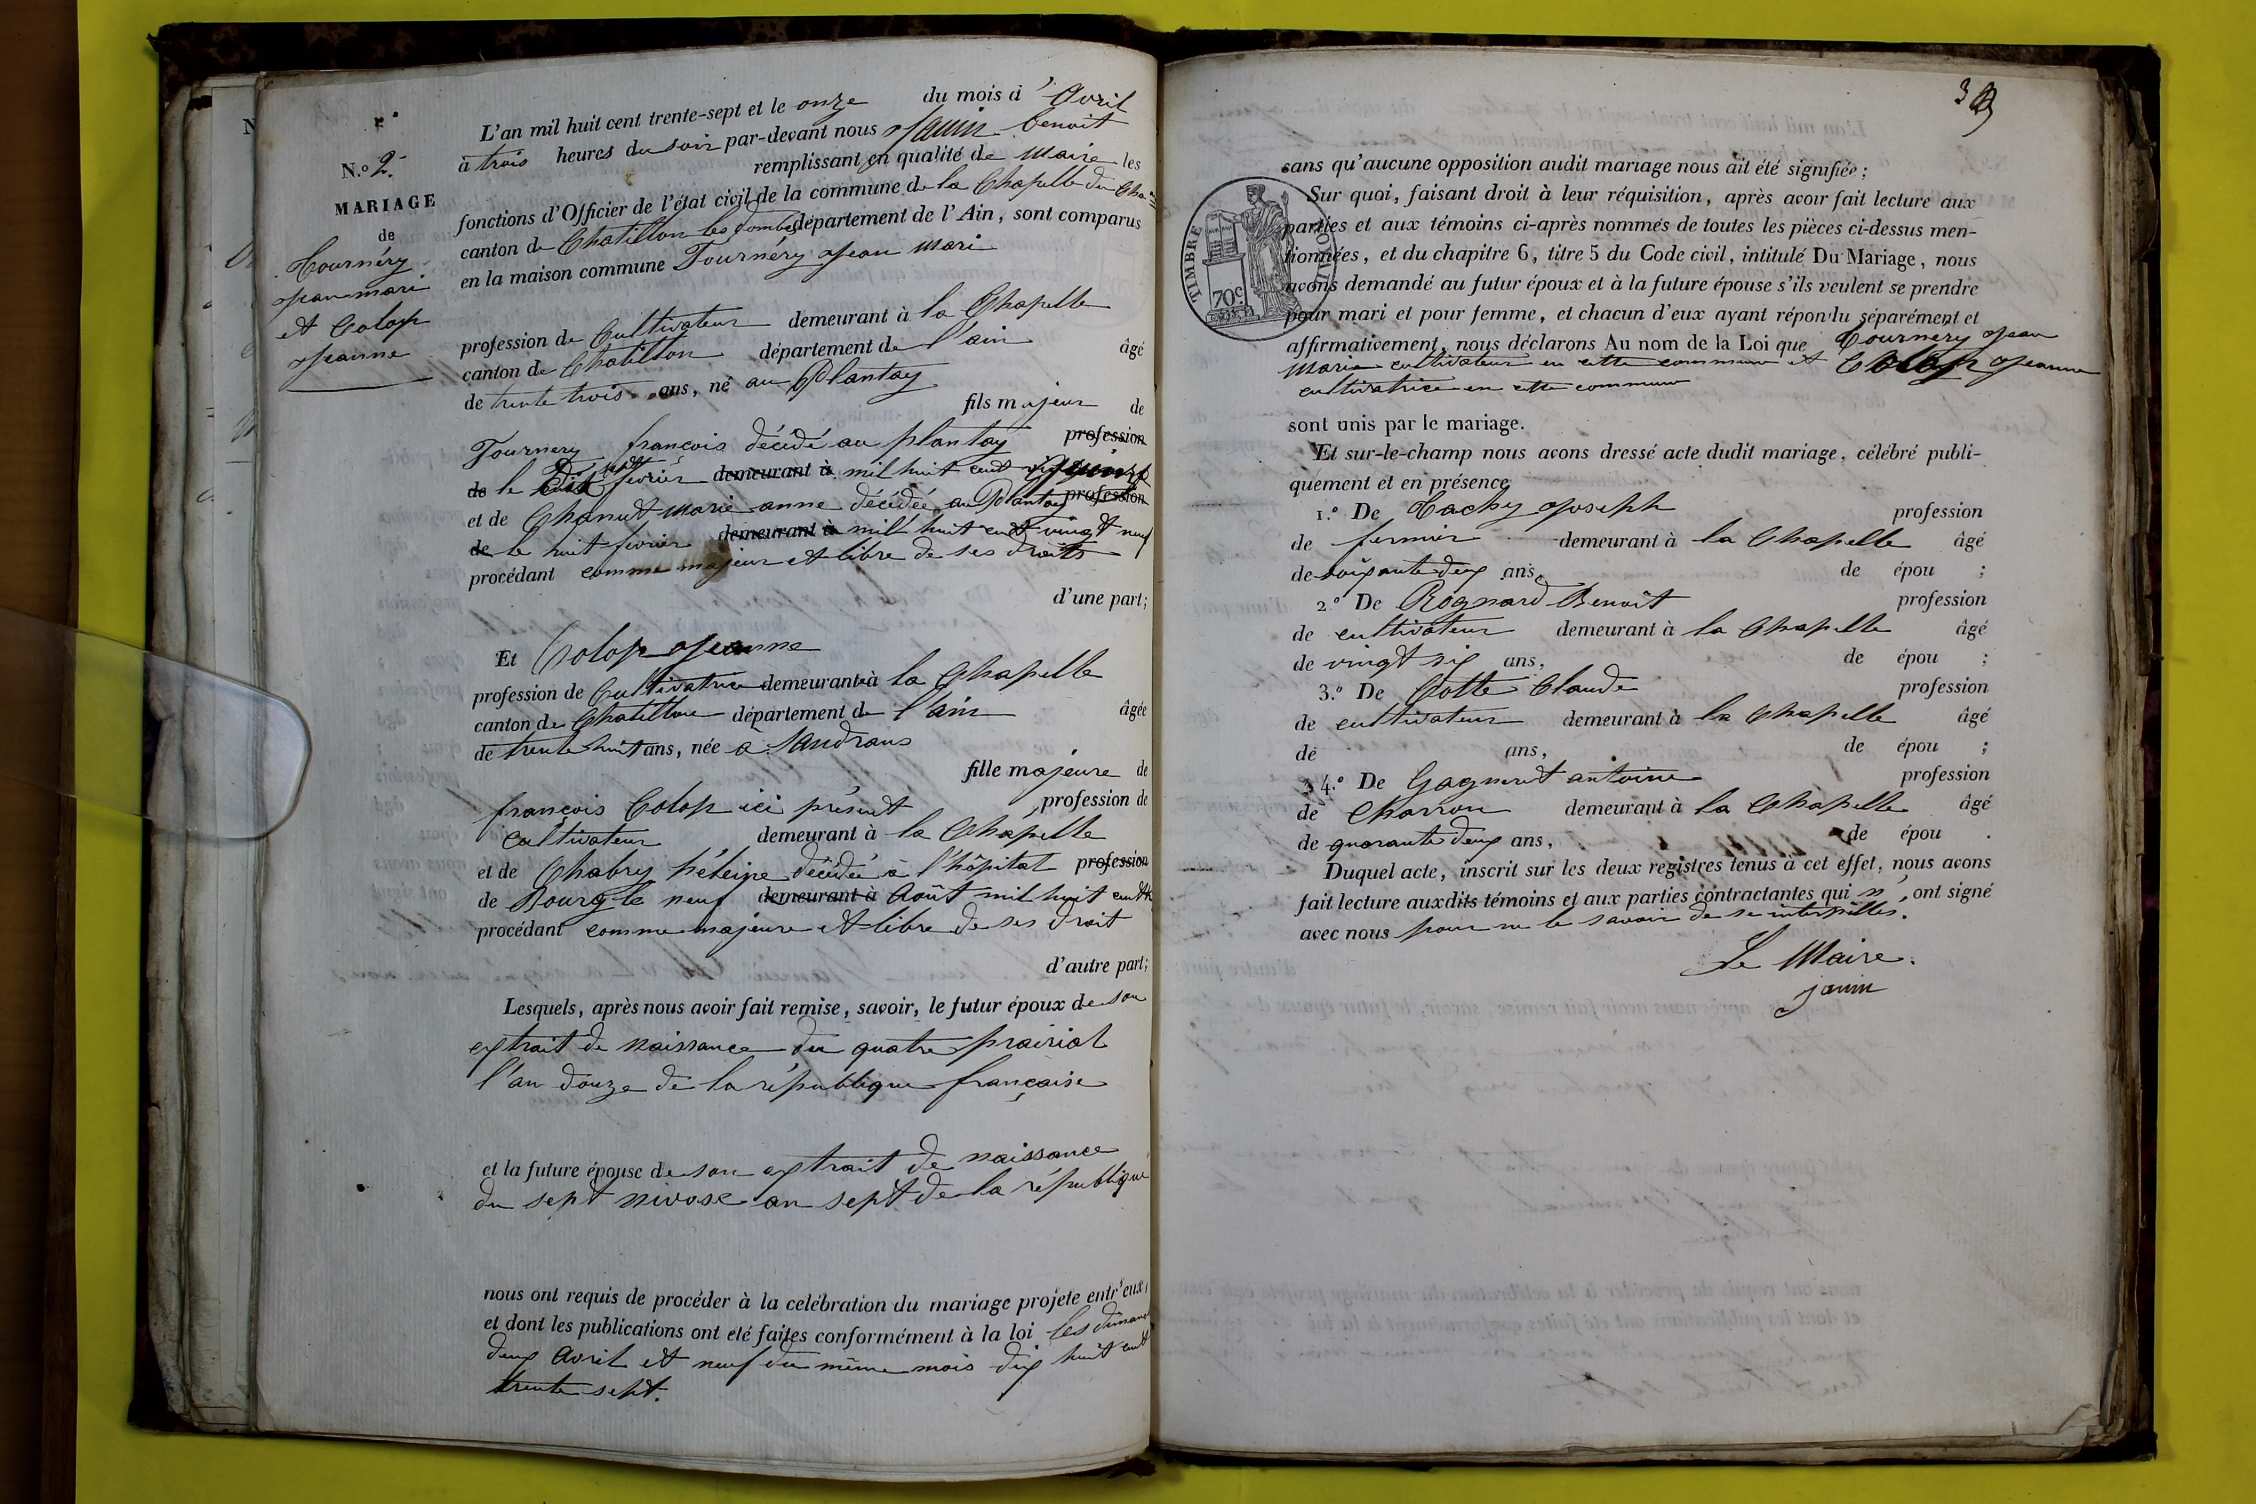 N.o 2.
MARIAGE
de
Tournéry
Jean mari
et Colop
Jeanne
L'an mil huit cent trente-sept et le onze du mois d'Avril
à trois heures du soir par-devant nous Janin benoit
remplissant en qualité de Maire les
fonctions d'Officier de l'état civil de la commune de la Chapelle du Cha
canton de Chatillon les dombes département de l'Ain, sont comparus
en la maison commune Tournéry Jean Mari
profession de Cultivateur demeurant à la Chapelle
canton de Chatillon département de l'ain âgé
de trente trois ans, né au Plantay
fils majeur de
Tournery françois décédé au plantay profession
de le sept février demeurant à mil huit cent quinze
et de Chanut Marie anne décédée au Plantay profession
de le huit février demeurant à mil huit cent vingt neuf
procédant comme majeur et libre de ses droits
d'une part;
Et Colop Jeanne
profession de Cultivatrice demeurant à la Chapelle
canton de Chatillon département de l'ain âgée
de trente huit ans, née à Sandrans
fille majeure de
françois Colop ici présent profession de
Cultivateur demeurant à la Chapelle
et de Chabry héleine décédée à l'hôpital profession
de Bourg le neuf demeurant à Août mil huit cent
procédant comme majeure et libre de ses droit
d'autre part;
Lesquels, après nous avoir fait remise, savoir, le futur époux de son
extrait de naissance du quatre prairial
l'an douze de la république française
et la future épouse de son extrait de naissance
du sept nivose an sept de la république
nous ont requis de procéder à la celébration du mariage projete entr'eux,
et dont les publications ont eté faites conformément à la loi les dimanc
deux Avril et neuf du même mois dix huit cent
trente sept.
sans qu'aucune opposition audit mariage nous ait été signifiée;
Sur quoi, faisant droit à leur réquisition, après avoir fait lecture aux
parties et aux témoins ci-après nommés de toutes les pièces ci-dessus men-
tionnées, et du chapitre 6, titre 5 du Code civil, intitulé Du Mariage, nous
avons demandé au futur époux et à la future épouse s'ils veulent se prendre
pour mari et pour femme, et chacun d'eux ayant répondu séparément et
affirmativement, nous déclarons Au nom de la Loi que Tournéry Jean
Marie cultivateur en cette commune et Colop Jeanne
cultivatrice en cette commune
sont unis par le mariage.
Et sur-le-champ nous avons dressé acte dudit mariage, célébré publi-
quement et en présence
1.o De Tachy Joseph profession
de fermier demeurant à la Chapelle âgé
de soixante deux ans, de épou ;
2.o De Rognard Benoit profession
de cultivateur demeurant à la Chapelle âgé
de vingt six ans, de épou ;
3.o De Cotte Claude profession
de cultivateur demeurant à la Chapelle âgé
de ans, de épou ;
4.o De Gagneret antoine profession
de Charron demeurant à la Chapelle âgé
de quarante deux ans, de épou .
Duquel acte, inscrit sur les deux registres tenus à cet effet, nous avons
fait lecture auxdits témoins et aux parties contractantes qui n'ont signé
avec nous pour ne le savoir de ce interpellés.
Le Maire.
Janin
TIMBRE ROYAL
70c